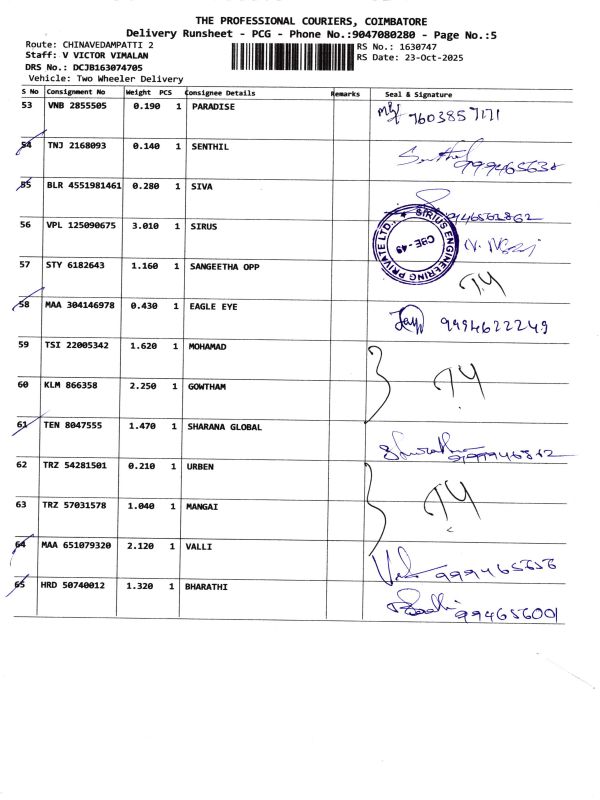 THE PROFESSIONAL COURIERS, COIMBATORE
Delivery Runsheet - PCG - Phone No.:9047080280 - Page No.:5
Route: CHINAVEDAMPATTI 2
RS No.: 1630747
Staff: V VICTOR VIMALAN
RS Date: 23-Oct-2025
DRS No.: DCJB163074705
Vehicle: Two Wheeler Delivery
S No Consignment No Weight PCS Consignee Details Remarks Seal & Signature
53 VNB 2855505 0.190 1 PARADISE 7603857171
54 TNJ 2168093 0.140 1 SENTHIL Senthil
55 BLR 4551981461 0.280 1 SIVA
56 VPL 125090675 3.010 1 SIRUS
SIRIUS ENGINEERING PRIVATE LTD. ★ CBE - 49
57 STY 6182643 1.160 1 SANGEETHA OPP
58 MAA 304146978 0.430 1 EAGLE EYE 9994622249
59 TSI 22005342 1.620 1 MOHAMAD
60 KLM 866358 2.250 1 GOWTHAM
61 TEN 8047555 1.470 1 SHARANA GLOBAL
62 TRZ 54281501 0.210 1 URBEN
63 TRZ 57031578 1.040 1 MANGAI
64 MAA 651079320 2.120 1 VALLI
65 HRD 50740012 1.320 1 BHARATHI 994656001